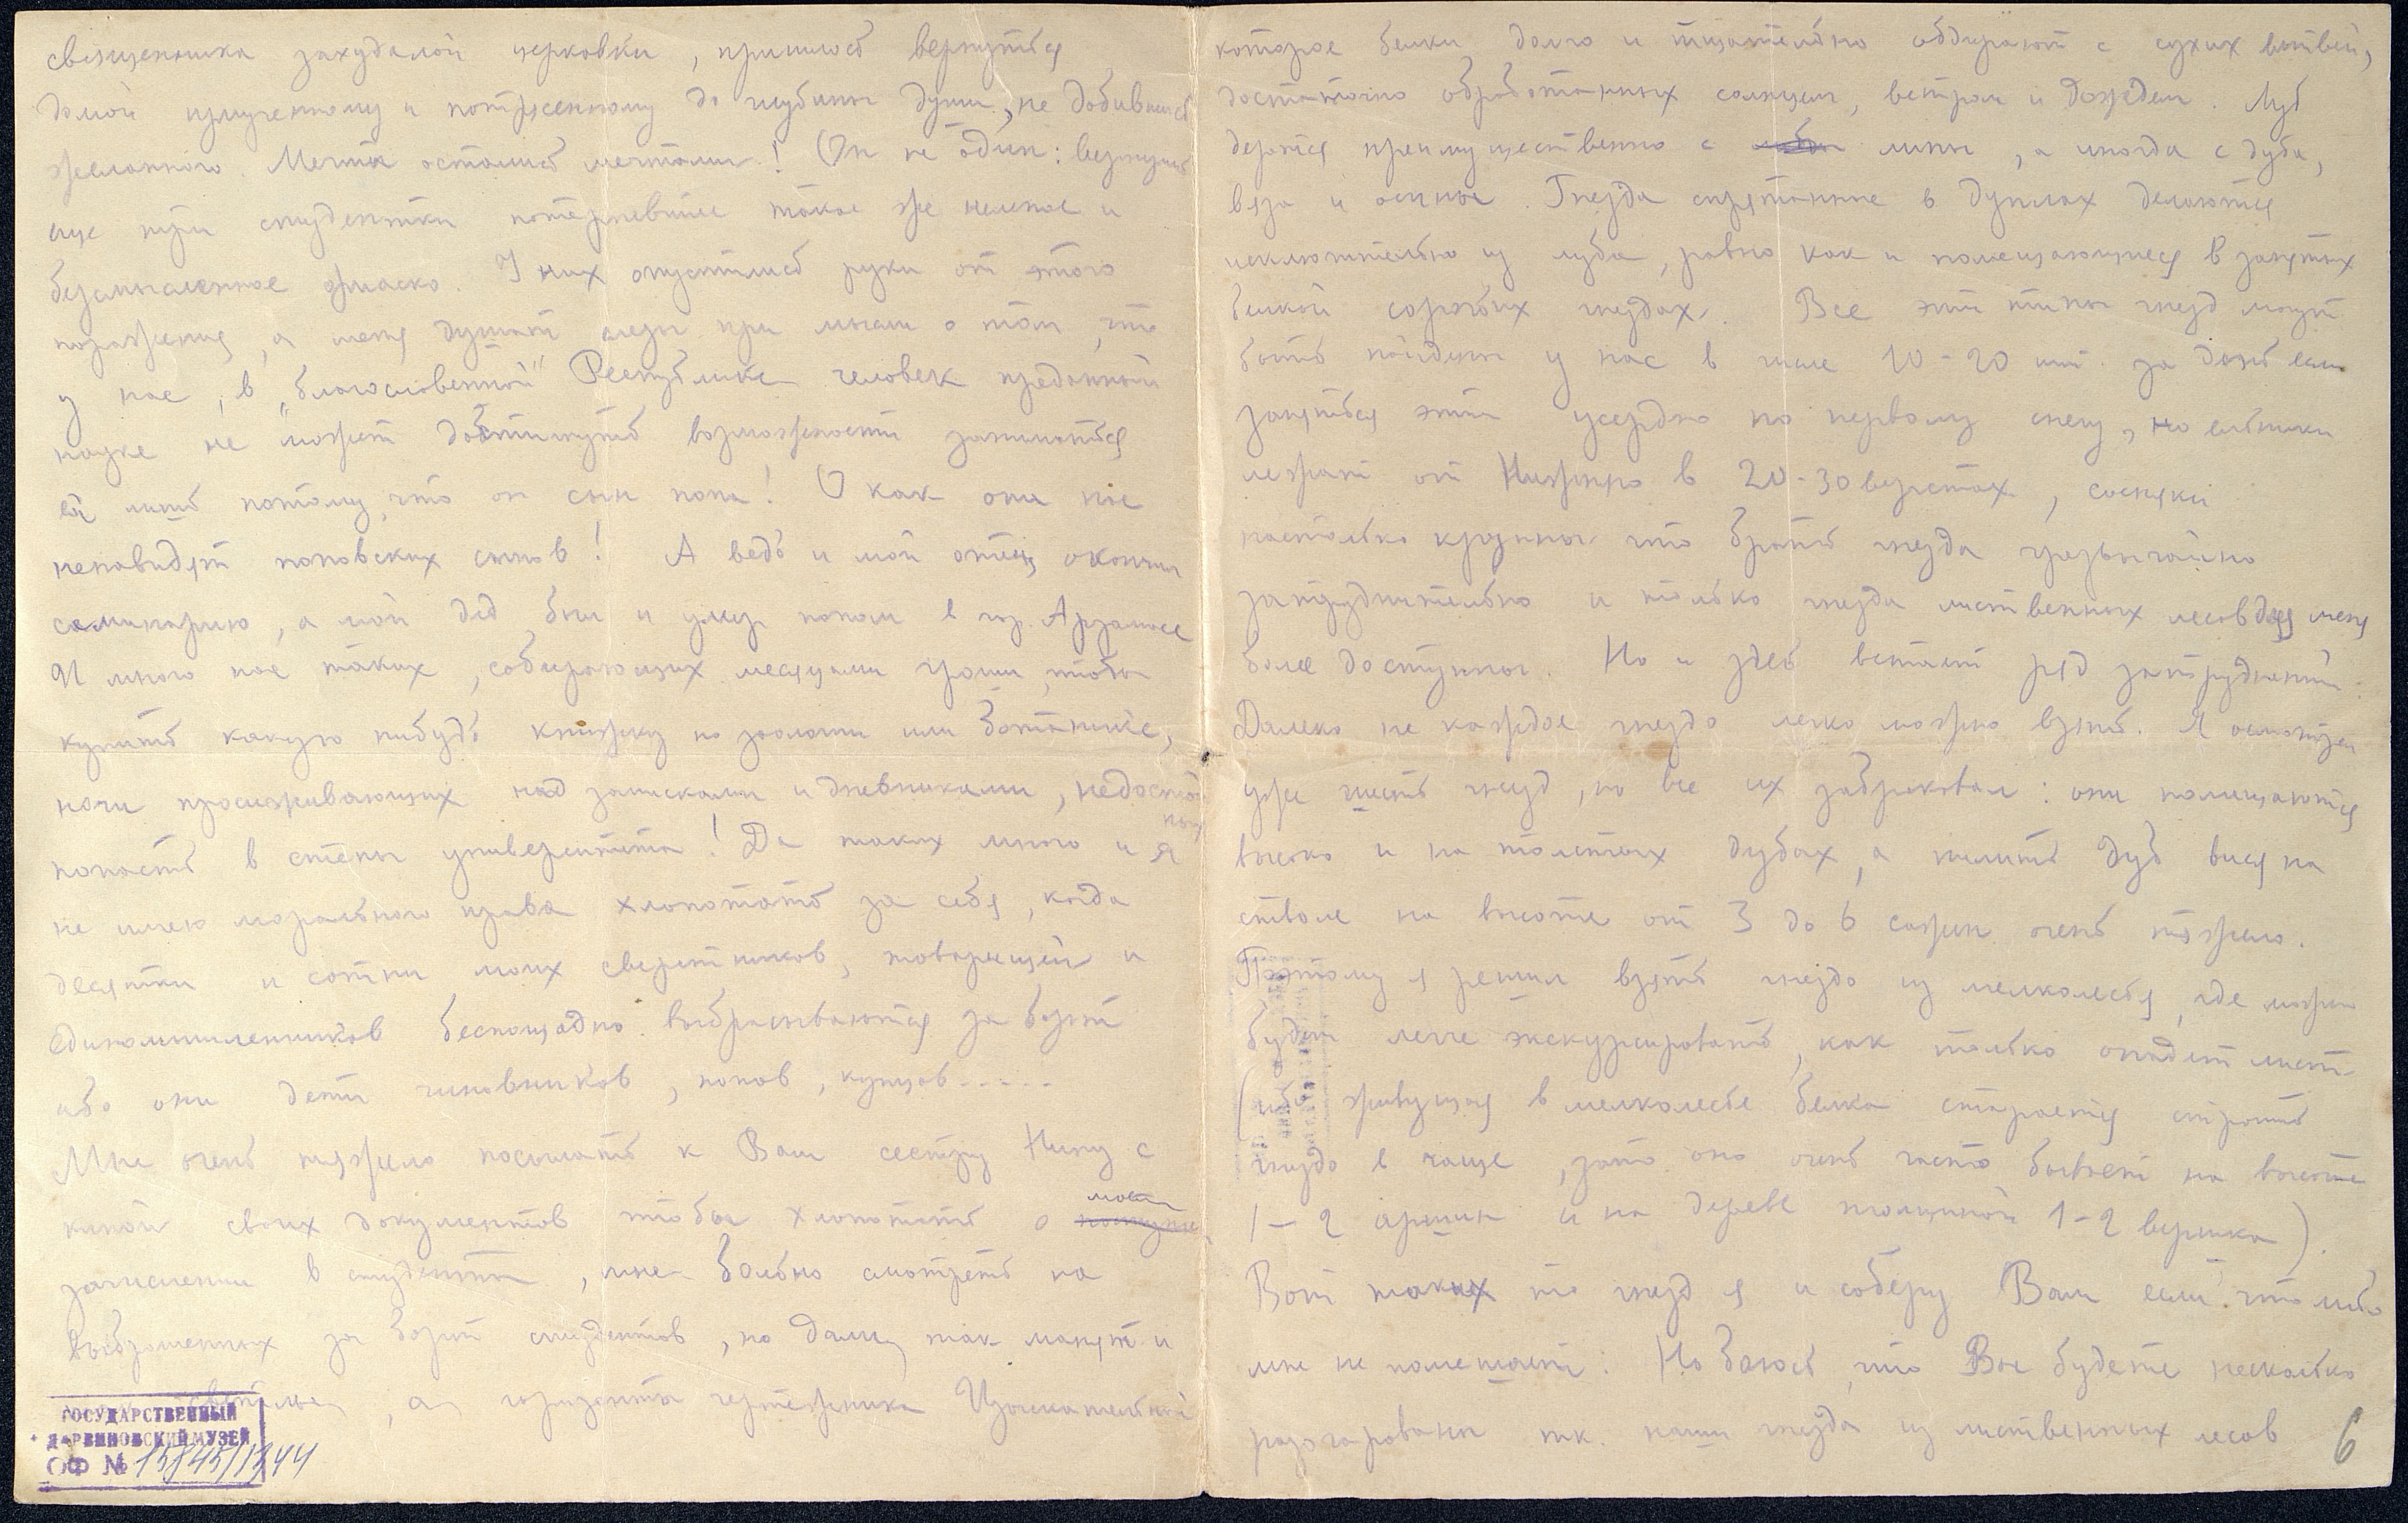 священника захудалой церковки, пришлось вернуться
домой измученному и потрясенному до глубины души, не добившись
желанного. Мечты остались мечтами! Он не один: вернулись
еще три студентки потерпевшие такое же нелепое и
безсмысленное фиаско. У них опустились руки от этого
поражения, а меня душат слезы при мысли о том, что
у нас, в „благословенной" Республике человек преданный
науке не может достигнуть возможности заниматься
ей лишь потому, что он сын попа! О как они нас
ненавидят поповских сынов! А ведь и мой отец окончил
семинарию, а мой дед был и умер попом в гор. Арзамасе
И много нас таких, собирающих месяцами гроши, чтобы
купить какую нибудь книжку по зоологии или ботанике,
ночи просиживающих над записками и дневниками, недостой
ных
попасть в стены университета! Да таких много и я
не имею морального права хлопотать за себя, когда
десятки и сотни моих сверстников, товарищей и
единомышленников беспощадно выбрасываются за борт
ибо они дети чиновников, попов, купцов.....
Мне очень тяжело посылать к Вам сестру Нину с
кипой своих документов чтобы хлопотать о моем
зачислении в студенты, мне больно смотреть на
выброшенных за борт студентов, но дали так манят и
светлы, а горизонты чертежника Изыскательной
ГОСУДАРСТВЕННЫЙ
ДАРВИНОВСКИЙ МУЗЕЙ
ОФ № 15145/1344
которое белки долго и тщательно обдирают с сухих ветвей,
достаточно обработанных солнцем, ветром и дождем. Луб
дерется преимущественно с липы, а иногда с дуба,
вяза и осины. Гнезда спрятанные в дуплах делаются
исключительно из луба, равно как и помещающиеся в занятых
белкой сорочьих гнездах. Все эти типы гнезд могут
быть найдены у нас в числе 10-20 шт. за день если
заняться этим усердно по первому снегу, но ельники
лежат от Нижнего в 20-30 верстах, сосняки
настолько крупны что брать гнезда чрезвычайно
затруднительно и только гнезда лиственных лесов для меня
более доступны. Но и здесь встает ряд затруднений:
Далеко не каждое гнездо легко можно взять. Я осмотрел
уже шесть гнезд, но все их забраковал: они помещаются
высоко и на толстых дубах, а пилить дуб вися на
стволе на высоте от 3 до 6 сажен очень тяжело.
Поэтому я решил взять гнездо из мелколесья, где можно
будет легче экскурсировать, как только опадет лист
(ибо живущая в мелколесье белка старается строить
гнездо в чаще, зато оно очень часто бывает на высоте
1-2 аршин и на дереве толщиной 1-2 вершка).
Вот таких то гнезд я и соберу Вам если что либо
мне не помешает: Но боюсь, что Вы будете несколько
разочарованы т.к. наши гнезда из лиственных лесов
6